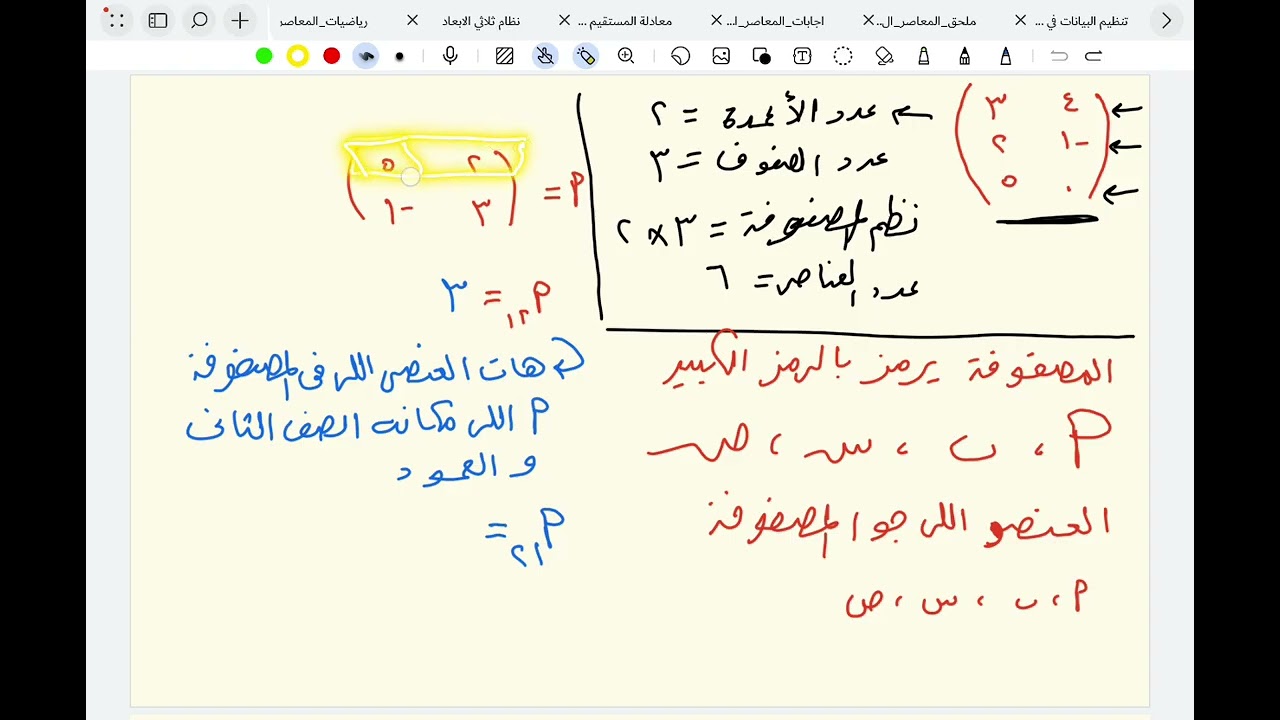 رياضيات_المعاصر
نظام ثلاثي الابعاد
معادلة المستقيم ...
اجابات_المعاصر_ا...
ملحق_المعاصر_ال...
تنظيم البيانات في ...
٤ ٣
-١ ٢
٠ ٥
عدد الأعمدة = ٢
عدد الصفوف = ٣
نظم المصفوفة = ٣ × ٢
عدد العناصر = ٦
المصفوفة يرمز بالرمز الكبير
P ، ب ، س ، ص
العنصر اللى جوا المصفوفة
P ، ب ، س ، ص
P = ٢ ٥
٣ -١
P١٢ = ٣
هات العنصر اللى فى المصفوفة
P اللى مكانه الصف الثانى
و العمود
P١٢ =